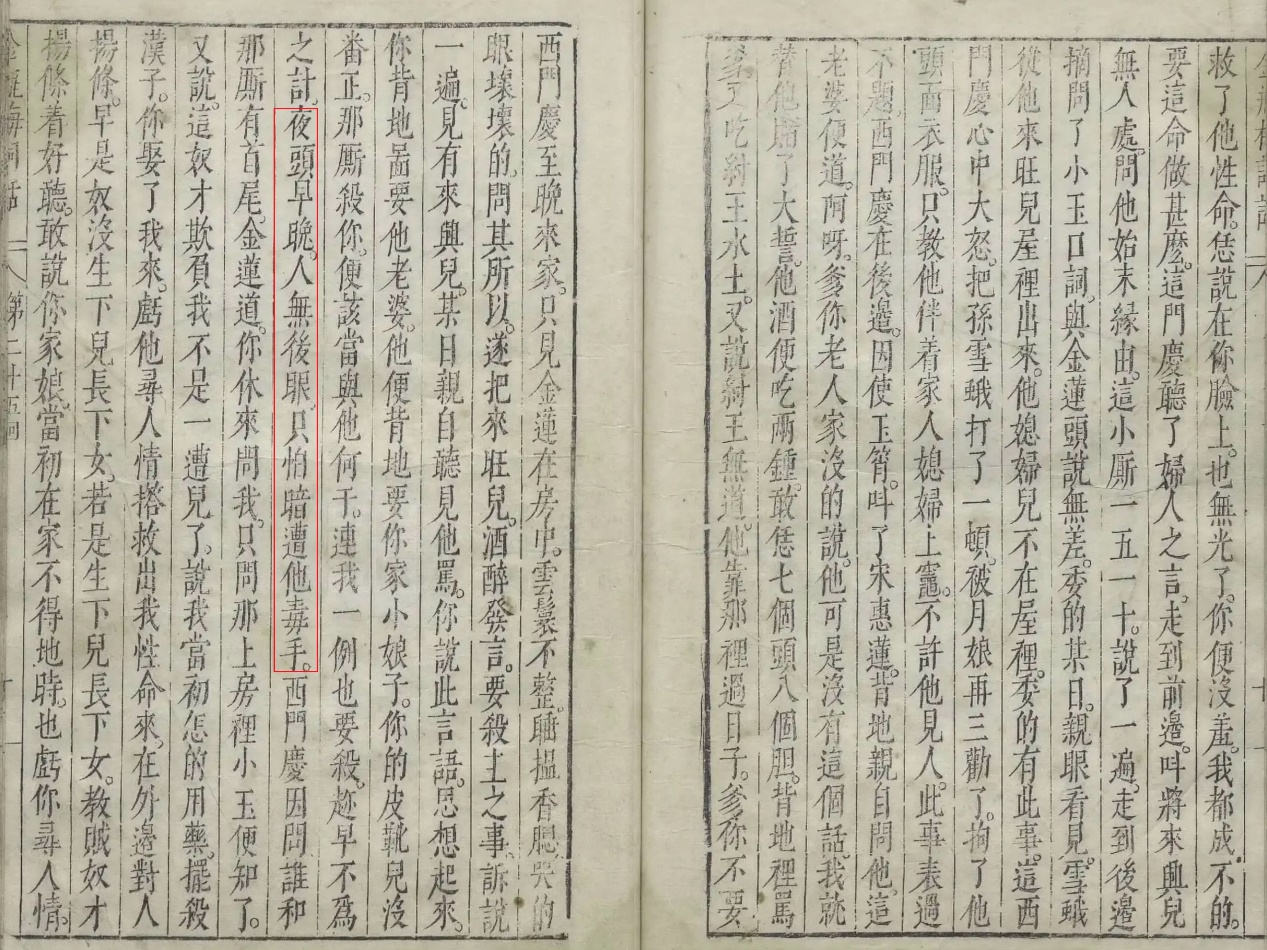 救了他性命。恁說在你臉上。也無光了。你便沒羞。我都成不的。
要這命做甚麼。這門慶聽了婦人之言。走到前邊。叫將來興兒
無人處。問他始末緣由。這小厮一五一十。說了一遍。走到後邊
摘問了小玉口詞。與金蓮頭說無差。委的某日。親眼看見。雪蛾
從他來旺兒屋裡出來。他媳婦兒不在屋裡。委的有此事。這西
門慶心中大怒。把孫雪蛾打了一頓。被月娘再三勸了。拘了他
頭面衣服。只教他伴着家人媳婦上竈。不許他見人。此事表過
不題。西門慶在後邊。因使玉筲。叫了宋惠蓮。背地親自問他。這
老婆便道。阿呀。爹你老人家沒的說。他可是沒有這個話。我就
替他賭了大誓。他酒便吃兩鍾。敢恁七個頭八個胆。背地裡罵
爹。又吃紂王水土。又說紂王無道。他靠那裡過日子。爹你不要
西門慶至晚來家。只見金蓮在房中。雲鬟不整。睡搵香腮。哭的
眼壞壞的。問其所以。遂把來旺兒。酒醉發言。要殺主之事、訴說
一遍。見有來興兒。某日親自聽見他罵。你說此言語。思想起來。
你背地啚要他老婆。他便背地要你家小娘子。你的皮靴兒沒
番正。那厮殺你。便該當與他何干。連我一例也要殺。趂早不為
之計。夜頭早晚。人無後眼。只怕暗遭他毒手。西門慶因問誰和
那厮有首尾。金蓮道。你休來問我。只問那上房裡小玉便知了。
又說。這奴才欺負我不是一遭兒了。說我當初怎的用藥。擺殺
漢子。你娶了我來。虧他尋人情搭救出我性命來。在外邊對人
揚條。早是奴沒生下兒長下女。若是生下兒長下女。教賊奴才
揚條着好聽。敢說你家娘。當初在家不得地時。也虧你尋人情。
金瓶梅詞話 第二十五回